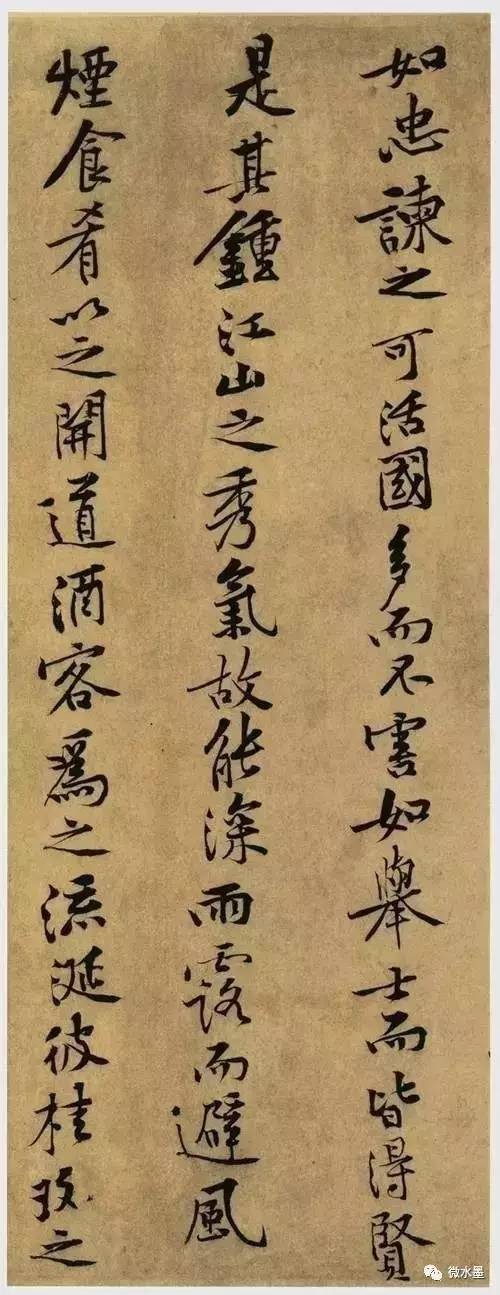 如忠諫之可活國多而不害如舉士而皆得賢
是其鍾江山之秀氣故能深雨露而避風
煙食肴以之開道酒客爲之流涎彼桂玫之
微水墨